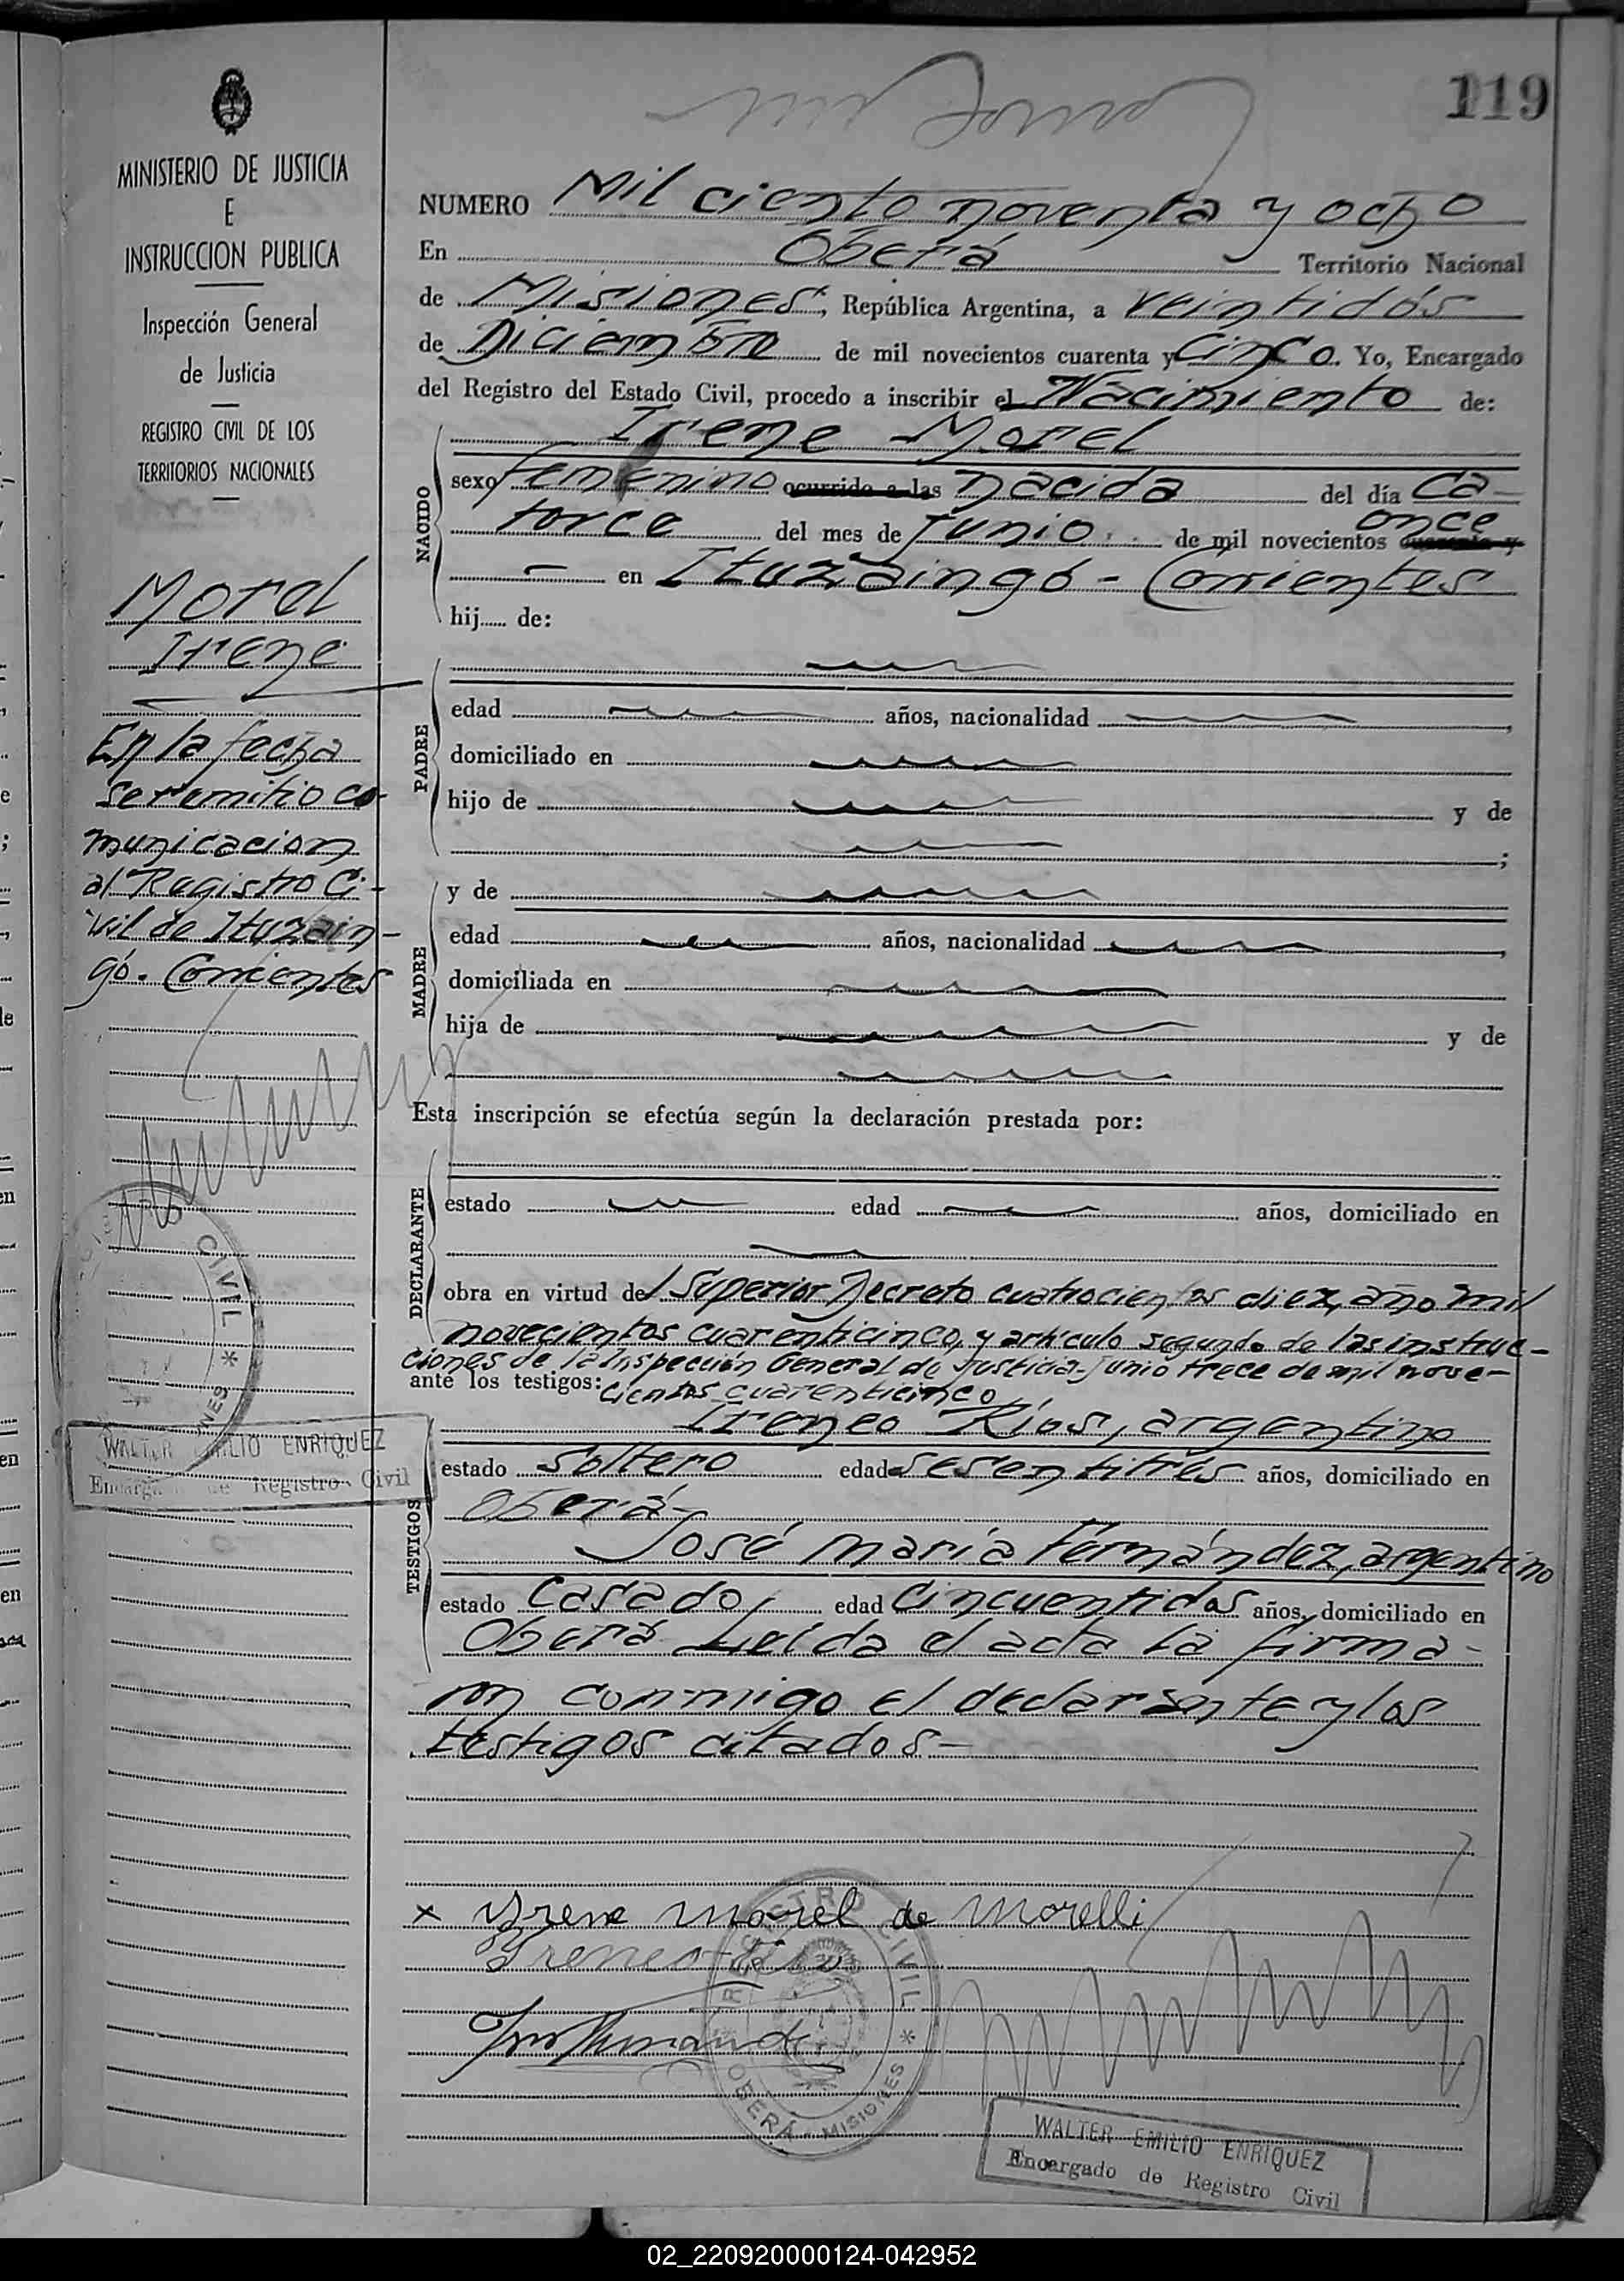 119
MINISTERIO DE JUSTICIA
E
INSTRUCCION PUBLICA
Inspección General
de Justicia
REGISTRO CIVIL DE LOS
TERRITORIOS NACIONALES
Morel
Irene
En la fecha
se remitio co-
municacion
al Registro Ci-
vil de Ituzain-
gó. Corrientes
CIVIL *
WALTER EMILIO ENRIQUEZ
Encargado de Registro Civil
NUMERO Mil ciento noventa y ocho
En Oberá Territorio Nacional
de Misiones, República Argentina, a veintidós
de Diciembre de mil novecientos cuarenta y cinco. Yo, Encargado
del Registro del Estado Civil, procedo a inscribir el Nacimiento de:
NACIDO
Irene Morel
sexo femenino ocurrido a las nacida del día ca-
torce del mes de junio de mil novecientos once
en Ituzaingó - Corrientes
hij..... de:
PADRE
edad años, nacionalidad
domiciliado en
hijo de y de
;
MADRE
y de
edad años, nacionalidad
domiciliada en
hija de y de
Esta inscripción se efectúa según la declaración prestada por:
DECLARANTE
estado edad años, domiciliado en
obra en virtud del Superior Decreto cuatrocientos diez, año mil
novecientos cuarenticinco, y artículo segundo de las instruc-
ciones de la Inspección General de Justicia-junio trece de mil nove-
ante los testigos: cientos cuarenticinco
TESTIGOS
Ireneo Rios, argentino
estado soltero edad sesentitrés años, domiciliado en
Oberá-
José maría Fernández, argentino
estado casado, edad cincuentidos años, domiciliado en
Oberá Leída el acta la firma-
ron conmigo el declarante y los
testigos citados-
x Irene Morel de Morelli
Ireneo Rios
REGISTRO CIVIL * OBERÁ - MISIONES
WALTER EMILIO ENRIQUEZ
Encargado de Registro Civil
02_220920000124-042952